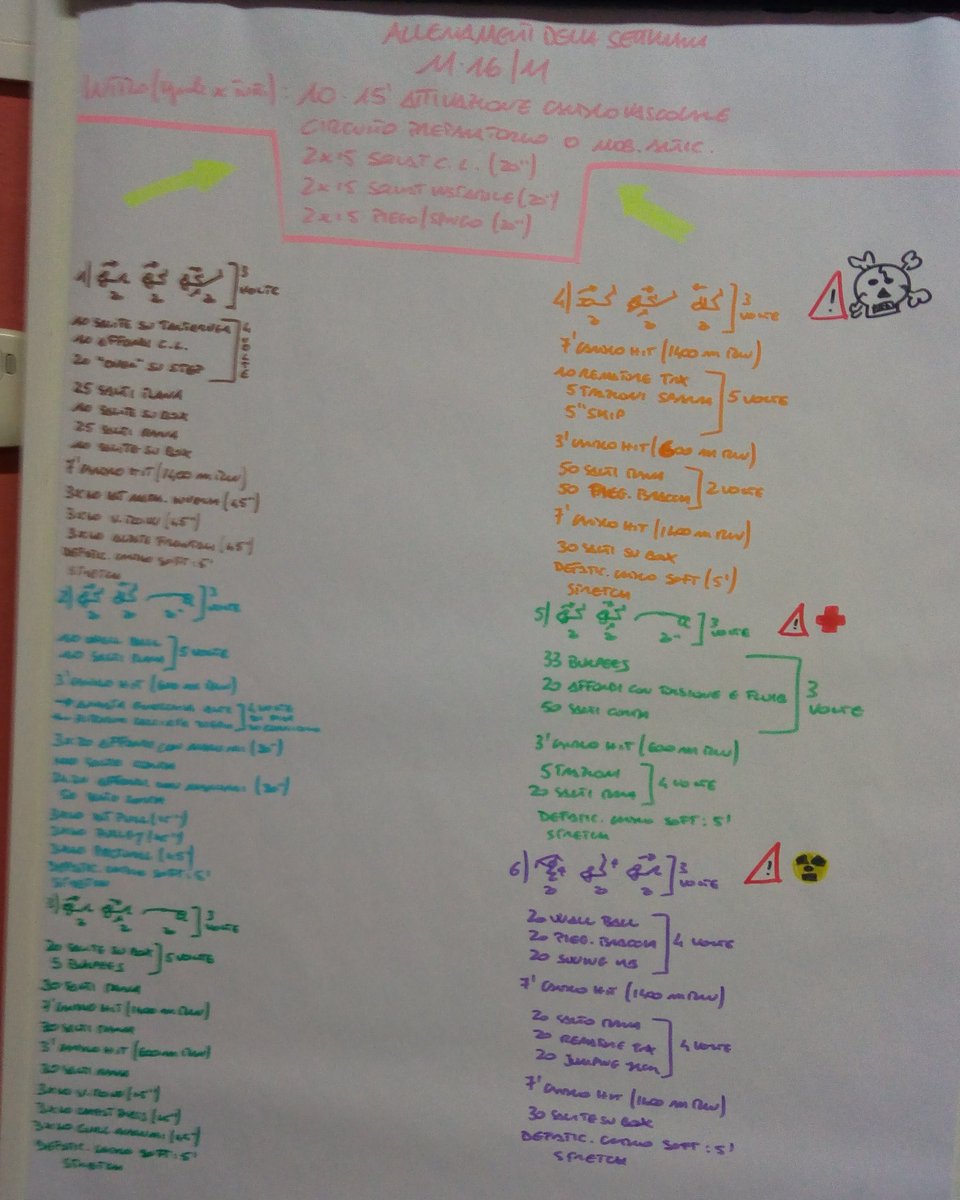 ALLENAMENTI DELLA SETTIMANA
11-16/11
INTRO : 10-15' ATTIVAZIONE CARDIOVASCOLARE
CIRCUITO PREPARATORIO O MOB. ARTIC.
2x15 SQUAT C.L. (20")
2x15 SQUAT INSTABILE (20")
2x15 PIEGO/SPINGO (20")
1) 2 2 2 ] 3 VOLTE
10 SALITE SU TARTARUGA
10 AFFONDI C.L.
20 "OVER" SU STEP
4 VOLTE
25 SALTI RANA
10 SALITE SU BOX
25 SALTI RANA
10 SALITE SU BOX
7' CARDIO HIT (1400 m ROW)
3x10 (45")
3x10 V. ROW (45")
3x10 ALZATE FRONTALI (45")
DEFATIC. CARDIO SOFT: 5'
STRETCH
2) 2 2 2" ] 3 VOLTE
10 WALL BALL
10 SALTI RANA
5 VOLTE
3' CARDIO HIT (600 m ROW)
4 VOLTE
3x20 AFFONDI CON MANUBRI (20")
100 SALTI CORDA
2x20 AFFONDI CON MANUBRI (20")
50 SALTI CORDA
3x10 (45")
3x10 PULLEY (45")
3x10 (45")
DEFATIC. CARDIO SOFT: 5'
STRETCH
3) 2 2 2" ] 3 VOLTE
20 SALITE SU BOX
5 BURPEES
5 VOLTE
30 SALTI RANA
7' CARDIO HIT (1400 m ROW)
30 SALTI RANA
3' CARDIO HIT (600 m ROW)
30 SALTI RANA
3x10 V. ROW (45")
3x10 CHEST PRESS (45")
3x10 CURL MANUBRI (45")
DEFATIC. CARDIO SOFT: 5'
STRETCH
4) 2 2 2 ] 3 VOLTE
7' CARDIO HIT (1400 m ROW)
10 REMATORE TRX
5 TRAZIONI SBARRA
5" SKIP
5 VOLTE
3' CARDIO HIT (600 m ROW)
50 SALTI RANA
50 PIEG. BRACCIA
2 VOLTE
7' CARDIO HIT (1400 m ROW)
30 SALTI SU BOX
DEFATIC. CARDIO SOFT (5')
STRETCH
5) 2 2 2" ] 3 VOLTE
33 BURPEES
20 AFFONDI CON TORSIONE E FLUIB
50 SALTI CORDA
3 VOLTE
3' CARDIO HIT (600 m ROW)
5 TRAZIONI
20 SALTI RANA
4 VOLTE
DEFATIC. CARDIO SOFT: 5'
STRETCH
6) 2 2 2 ] 3 VOLTE
20 WALL BALL
20 PIEG. BRACCIA
20 SWING KB
4 VOLTE
7' CARDIO HIT (1400 m ROW)
20 SALTO RANA
20 REMATORE TRX
20 JUMPING JACK
4 VOLTE
7' CARDIO HIT (1400 m ROW)
30 SALITE SU BOX
DEFATIC. CARDIO SOFT: 5'
STRETCH